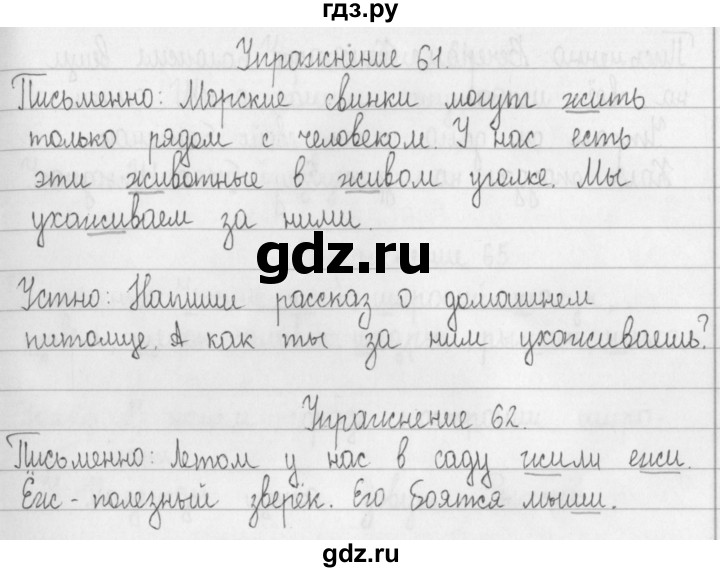 гдз.ру
Упражнение 61
Письменно: Морские свинки могут жить
только рядом с человеком У нас есть
эти животные в живом уголке. Мы
ухаживаем за ними.
gdz.ru
Устно: Напиши рассказ о домашнем
питомце. А как ты за ним ухаживаешь?
Упражнение 62.
Письменно: Летом у нас в саду жили ежи.
Ёж - полезный зверёк. Его боятся мыши.
gdz.ru